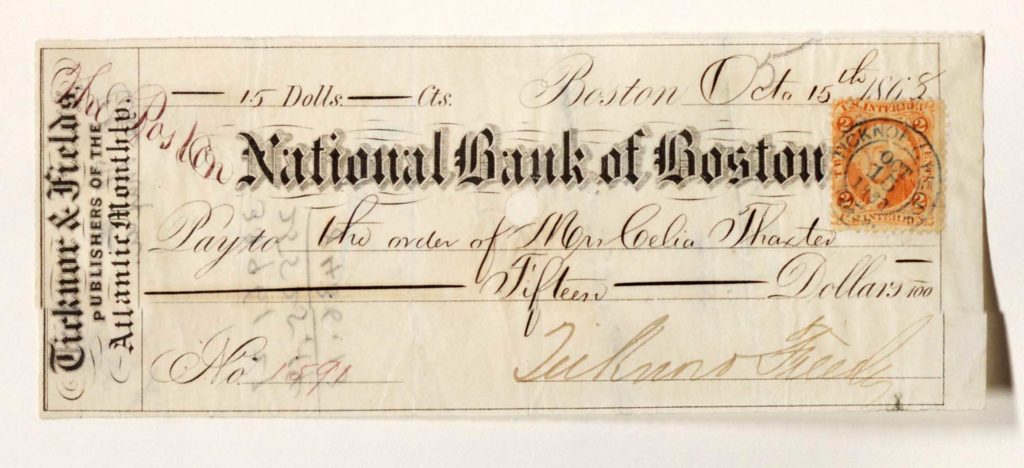 Ticknor & Fields,
PUBLISHERS OF THE
Atlantic Monthly.
15 Dolls. Cts.
Boston Oct. 15th 1868
The Boston
National Bank of Boston
Pay to the order of Mrs Celia Thaxter
Fifteen Dollars 100
No. 1591
Ticknor & Fields
2 U.S. INTER. REV. 2
TICKNOR
OCT
15
2 2
U.S. INTER. REV.